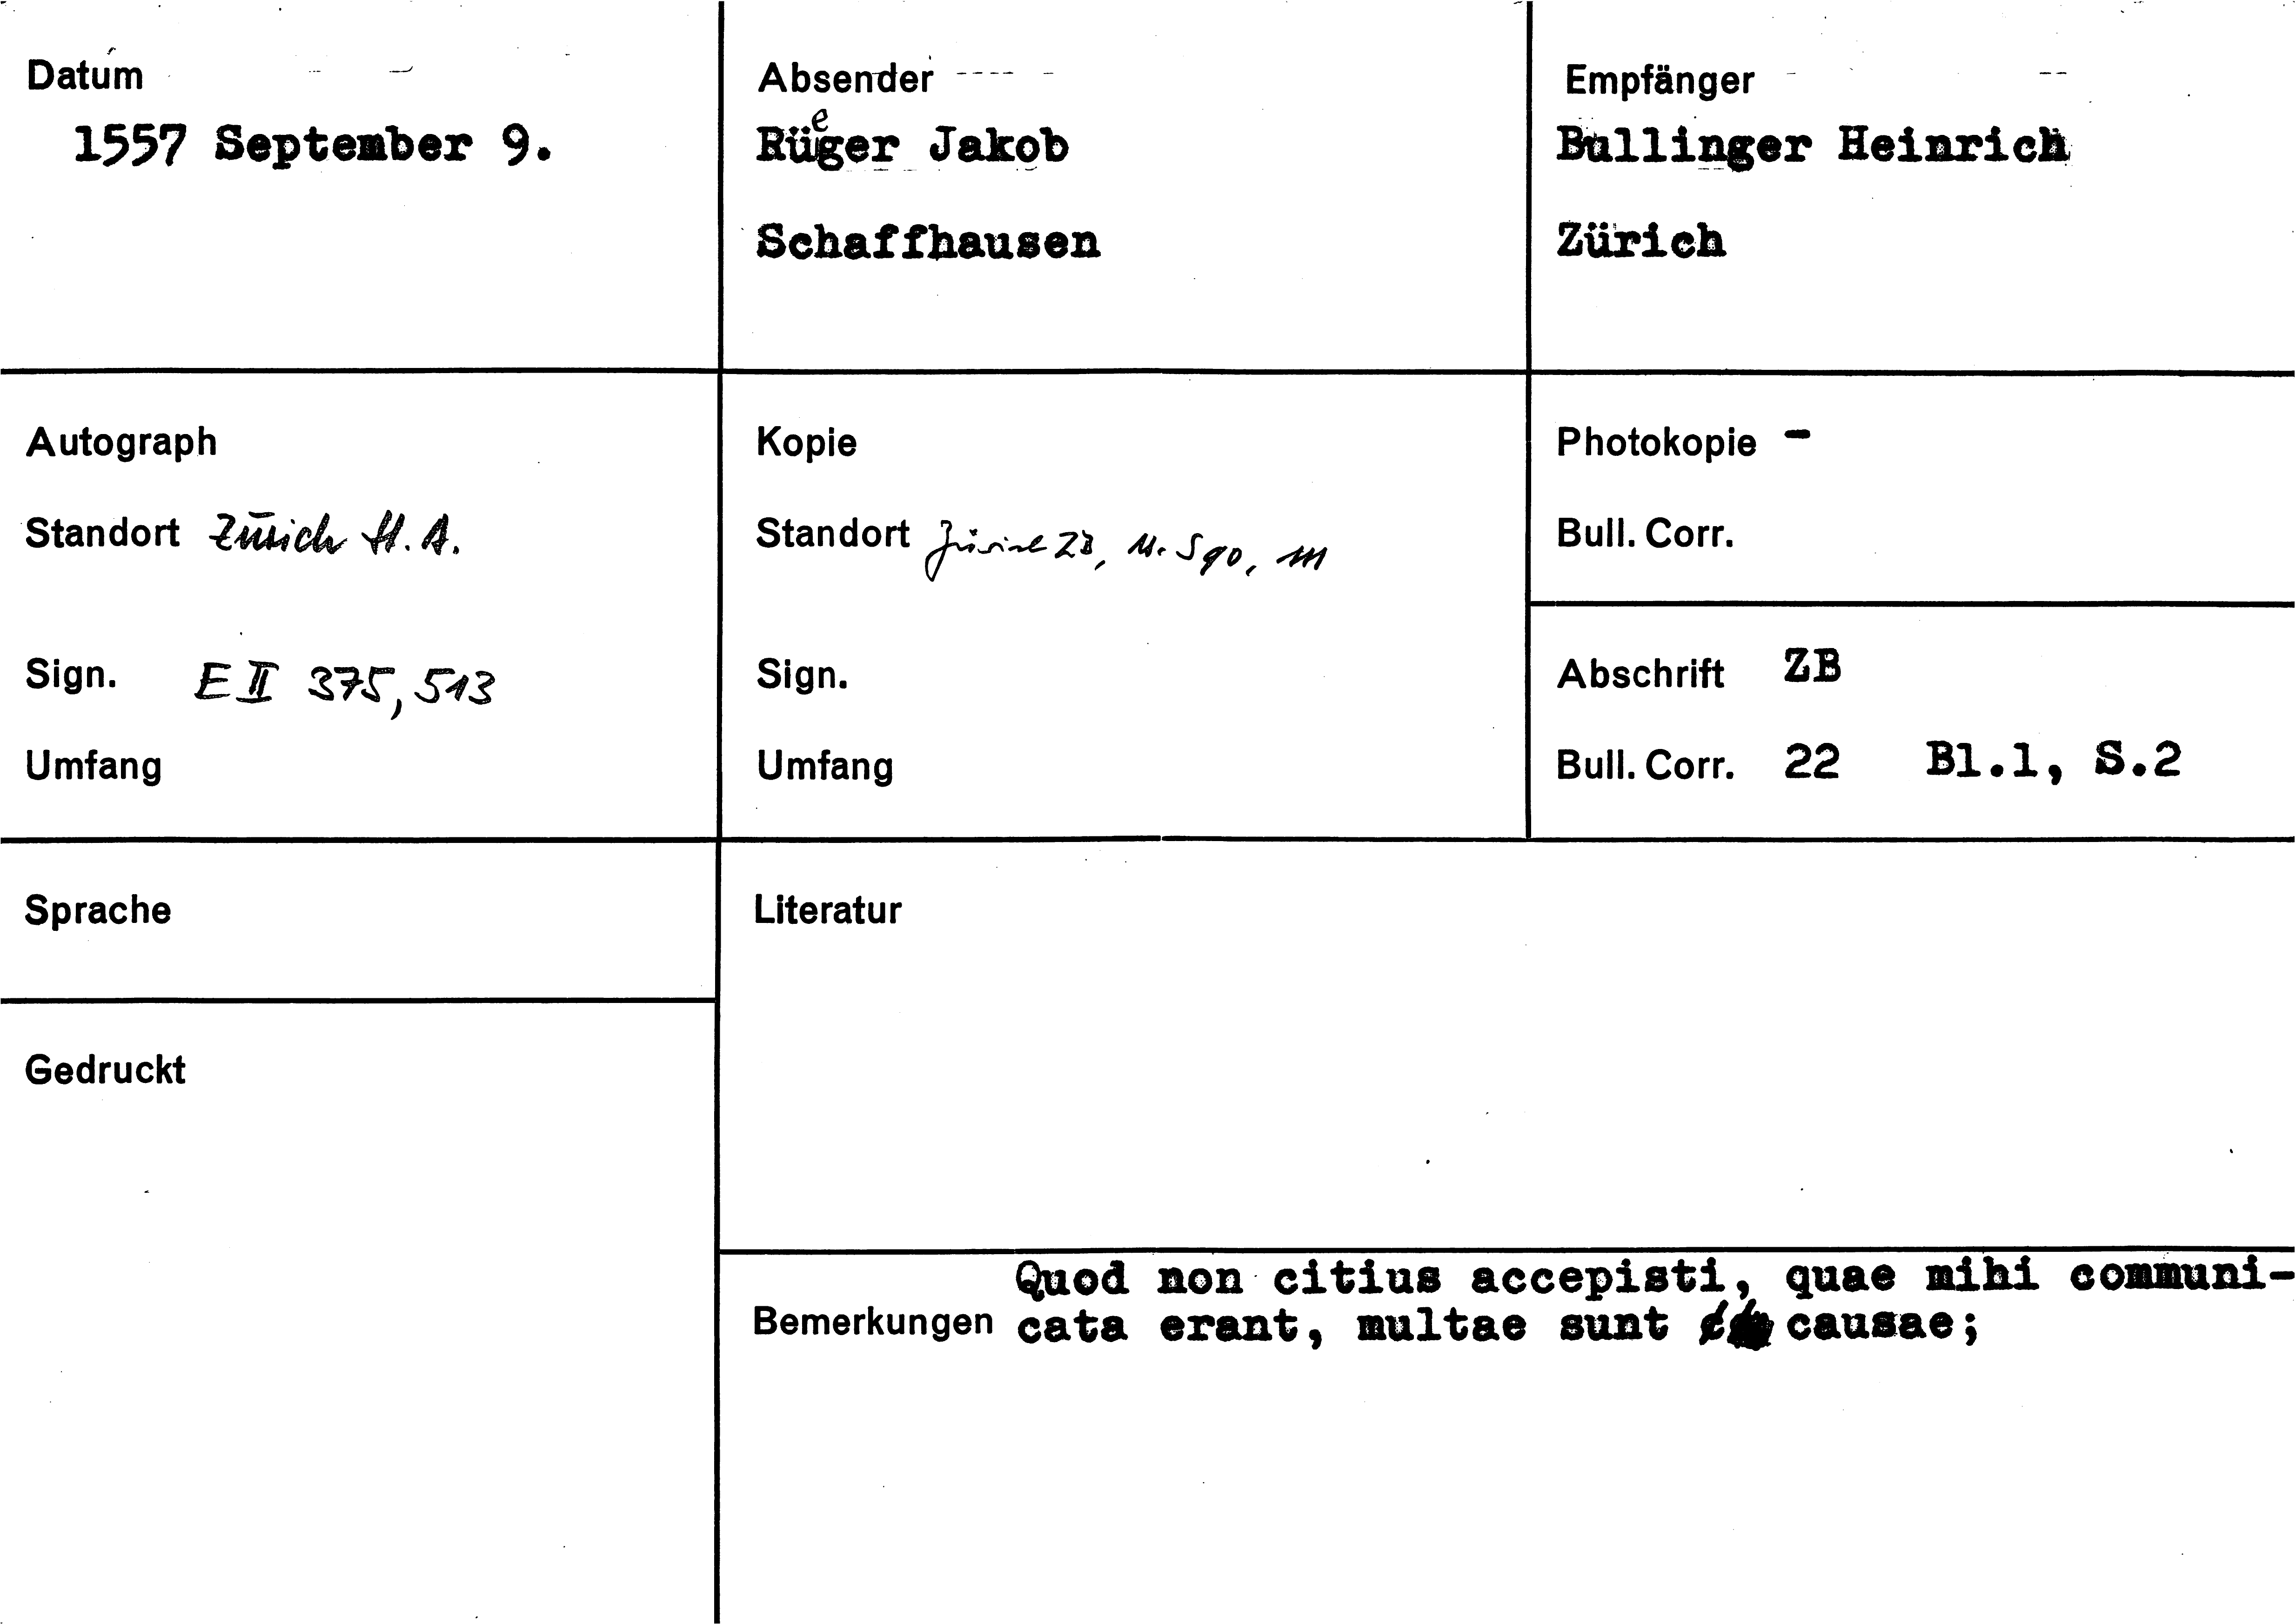 Datum
1557 September 9.
Absender
Rüeger Jakob
Schaffhausen
Empfänger
Bullinger Heinrich
Zürich
Autograph
Standort Zürich St. A.
Sign. E II 375, 513
Umfang
Kopie
Standort Zürich ZB, Ms. S 90, 111
Sign.
Umfang
Photokopie -
Bull. Corr.
Abschrift ZB
Bull. Corr. 22 Bl.1, S.2
Sprache
Gedruckt
Literatur
Quod non citius accepisti, quae mihi communi-
Bemerkungen cata erant, multae sunt causae;